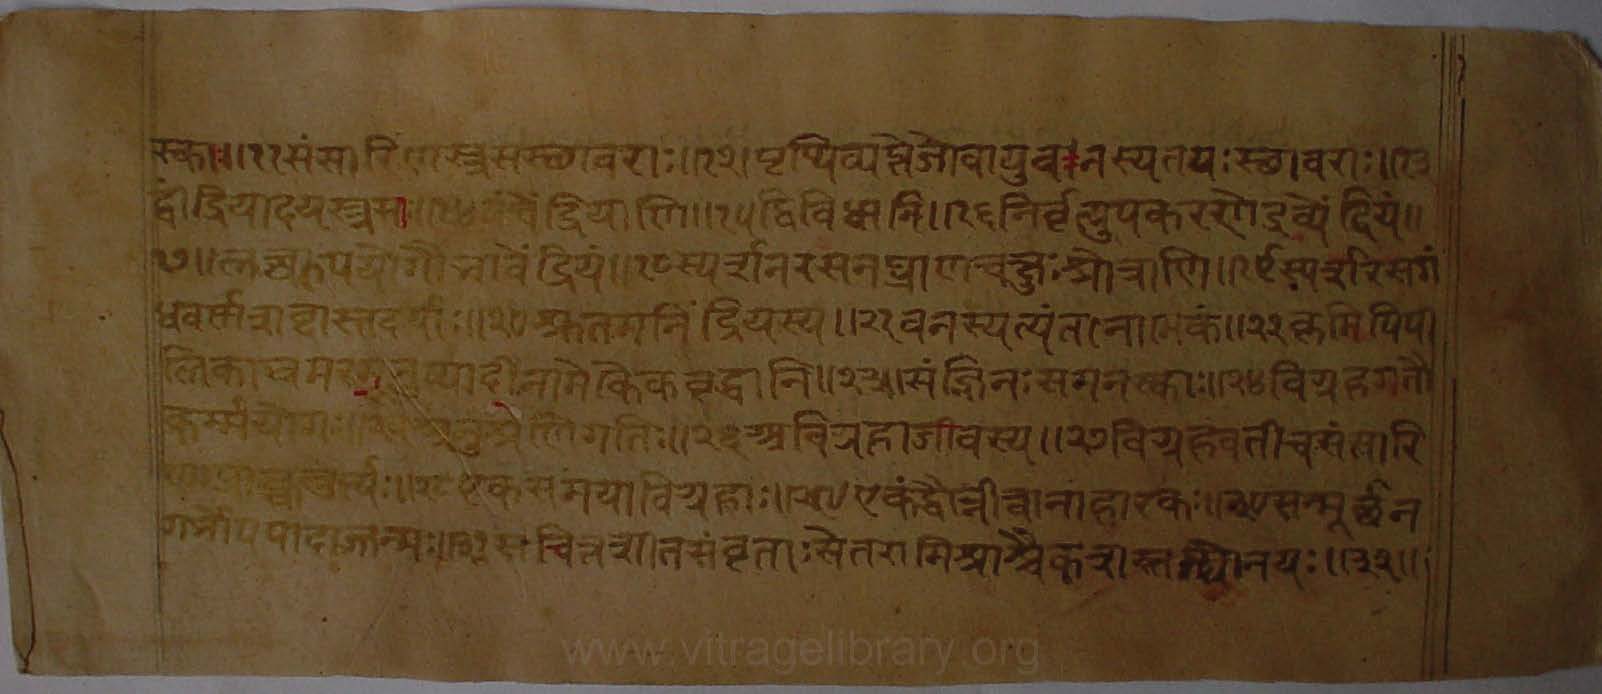 स्काः॥११संसारिणस्त्रसस्थावराः॥१२।पृथिव्यप्तेजोवायुवनस्पतयःस्थावराः॥१३
द्वींद्रियादयस्त्रसाः॥१४पंचेंद्रियाणि॥१५द्विविधानि॥१६निर्वृत्युपकरणेद्रव्येंद्रियं॥
७॥लब्ध्युपयोगौभावेंद्रियं॥१८स्पर्शनरसनघ्राणचक्षुःश्रोत्राणि॥१९स्पर्शरसगं
धवर्णशब्दास्तदर्थाः॥२०श्रुतमनिंद्रियस्य॥२१वनस्पत्यंतानामेकं॥२२कृमिपिपी
लिकाभ्रमरमनुष्यादीनामेकैकवृद्धानि॥२३॥संज्ञिनःसमनस्काः॥२४विग्रहगतौ
कर्म्मयोगः॥२५अनुश्रेणिगतिः॥२६अविग्रहाजीवस्य॥२७विग्रहवतीचसंसारि
णःप्राक्चतुर्भ्यः॥२८एकसमयाविग्रहाः॥२९एकंद्वौत्रीन्वानाहारकः॥३०सन्मूर्छन
गर्भोपपादाजन्मः॥३१सचित्तशीतसंवृताःसेतरामिश्राश्चैकशस्तद्योनयः॥३२॥
www.vitragelibrary.org